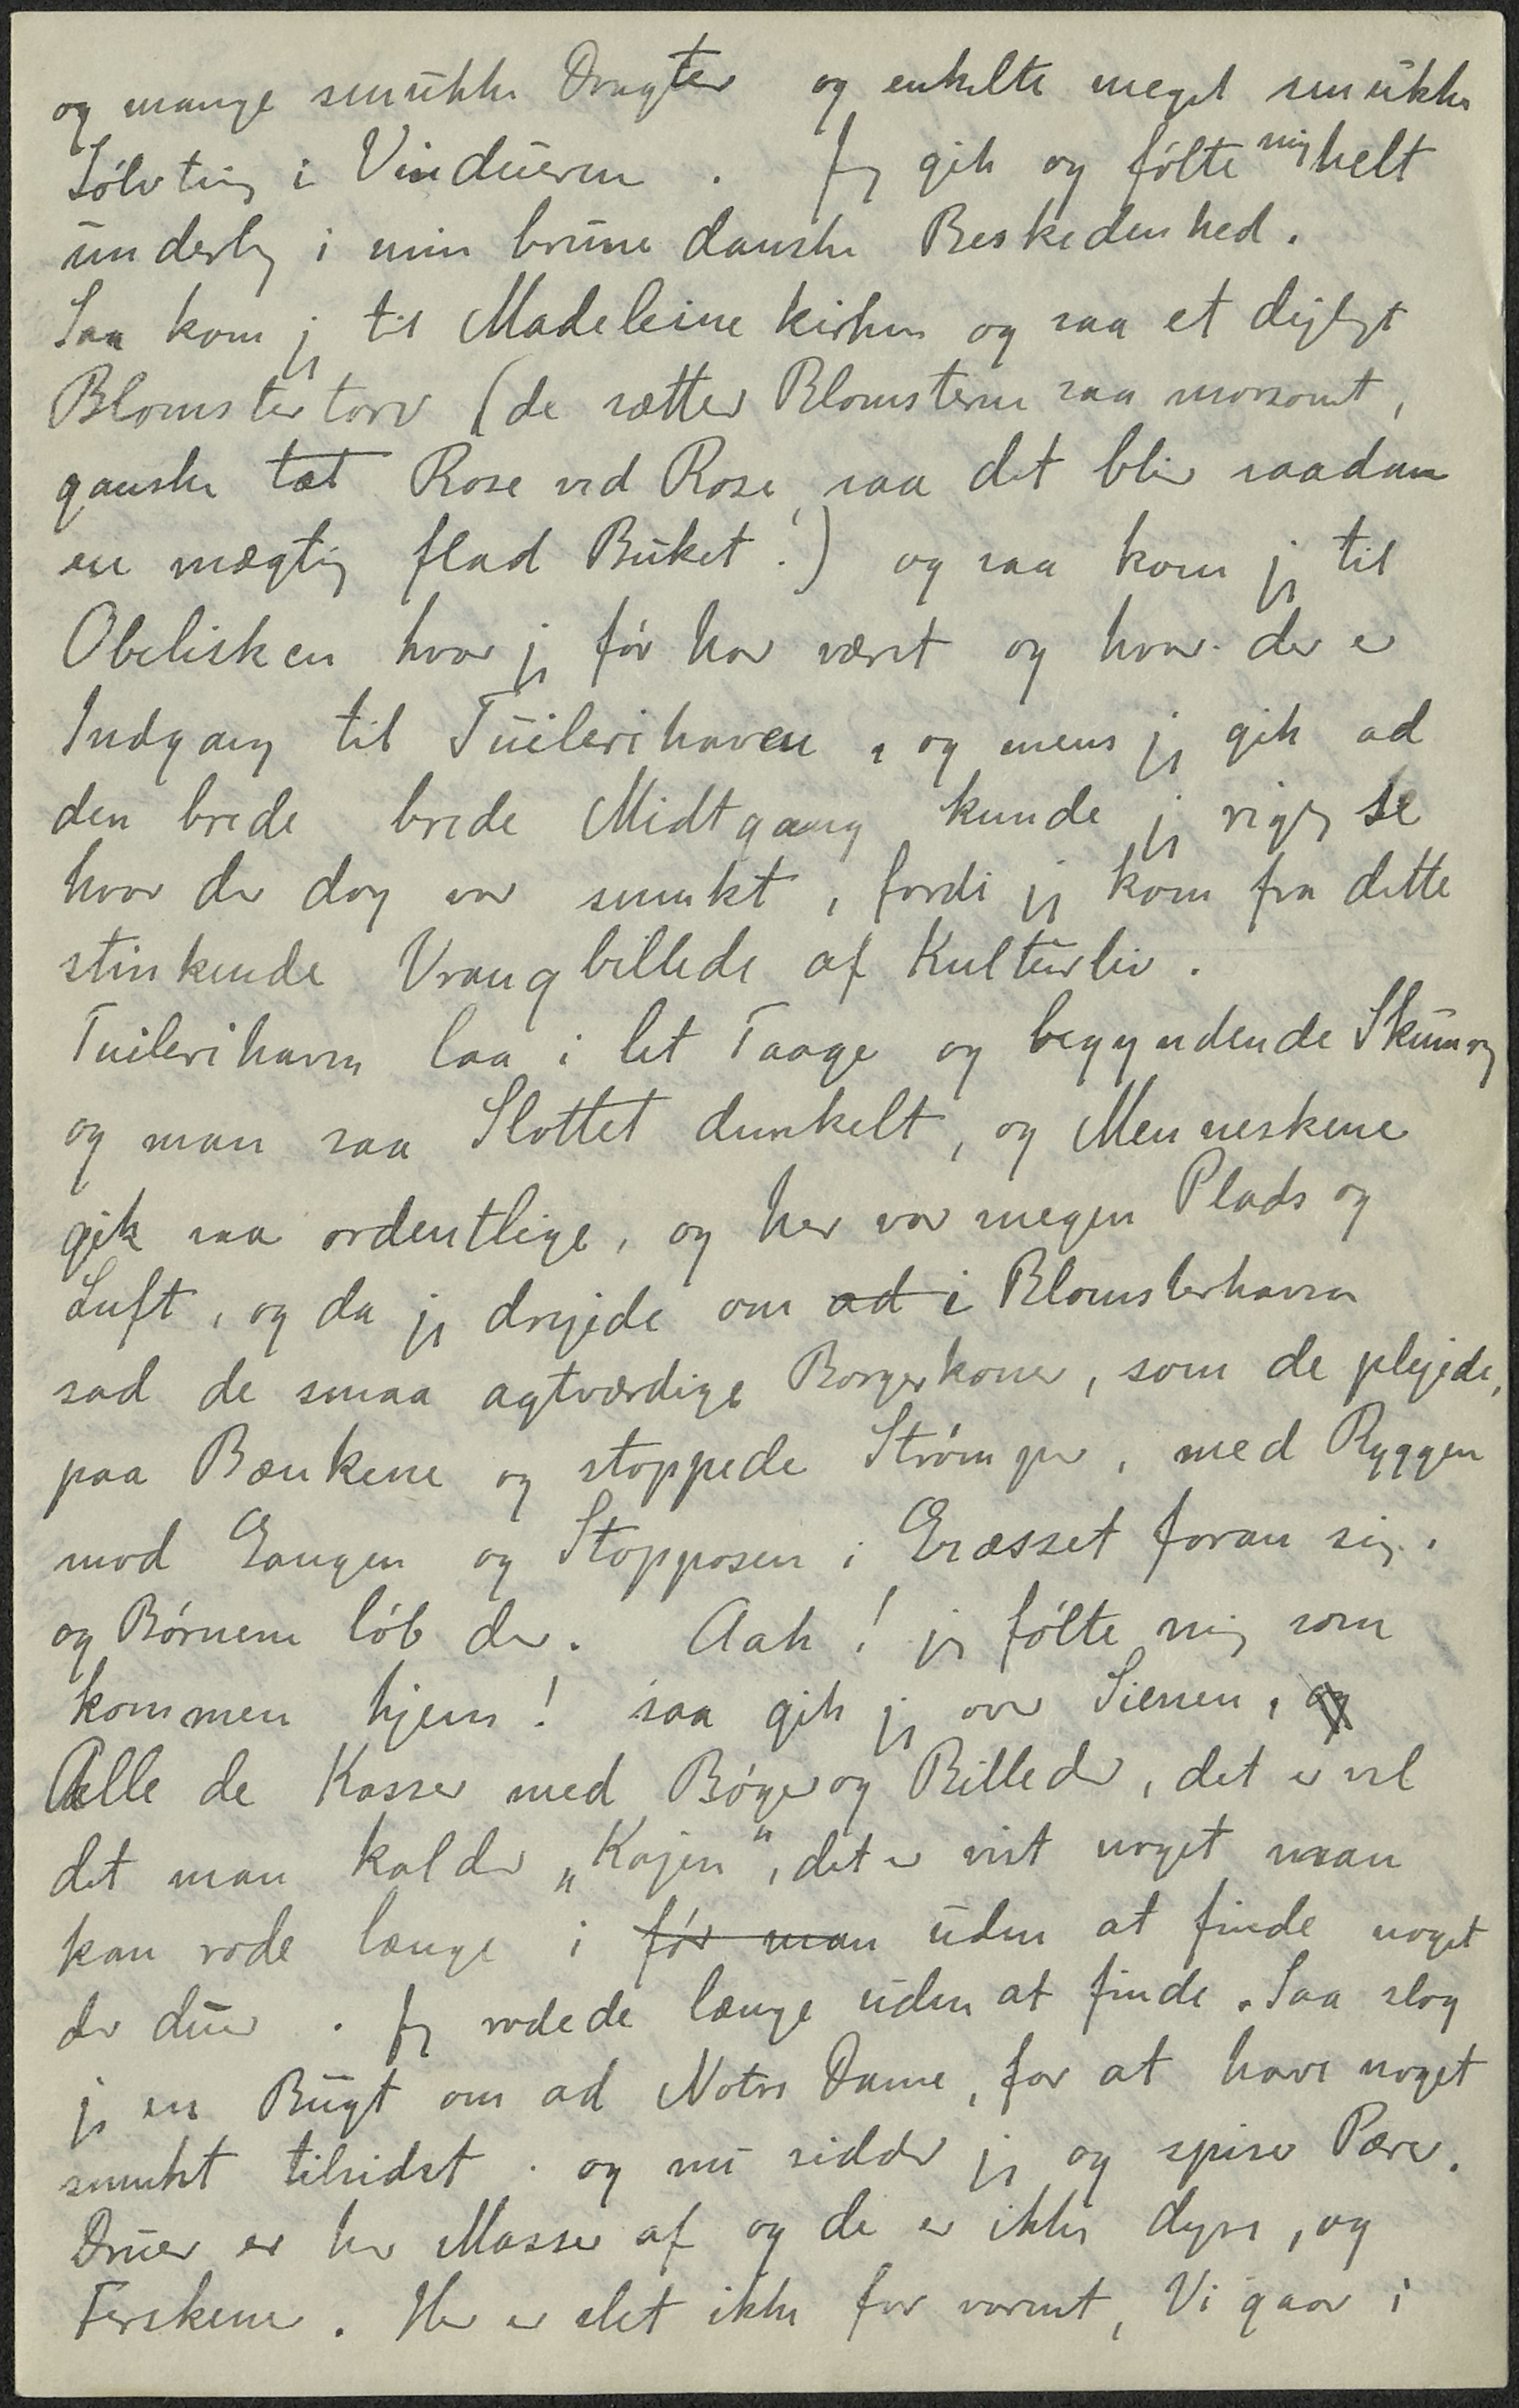 og mange smukke Dragter og enkelte meget smukke
Sølvting i Vinduerne. Jeg gik og følte mig helt
underlig i min brune danske Beskedenhed.
Saa kom jeg til Madeleine kirken og saa et dejligt
Blomstertorv (de sætter Blomsterne saa morsomt,
ganske tæt Rose ved Rose, saa det blir saadan
en mægtig flad Buket!) og saa kom jeg til
Obelisken hvor jeg før har været og hvor der er
Indgang til Tuilerihaven, og mens jeg gik ad
den brede brede Midtgang kunde jeg rigtig se
hvor der dog var smukt, fordi jeg kom fra dette
stinkende Vrangbillede af Kulturliv.
Tuilerihaven laa i let Taage og begyndende Skumring
og man saa Slottet dunkelt, og Menneskene
gik saa ordentlige, og her var megen Plads og
Luft, og da jeg drejede om ad i Blomsterhaven
sad de smaa agtværdige Borgerkoner, som de plejede,
paa Bænkene og stoppede Strømper, med Ryggen
mod Gangen og Stopposen i Græsset foran sig.
og Børnene løb der. Aah! jeg følte mig som
kommen hjem! saa gik jeg over Sienen, og
Alle de Kasser med Bøger og Billeder, det er vel
det man kalder „Kajen“, det er vist noget man
kan rode længe i før man uden at finde noget
der duer. Jeg rodede længe uden at finde. Saa slog
jeg en Bugt om ad Notre Dame, for at have noget
smukt tilsidst. og nu sidder jeg og spiser Pærer.
Druer er her Masser af og de er ikke dyre, og
Ferskener. Her er slet ikke for varmt, Vi gaar i